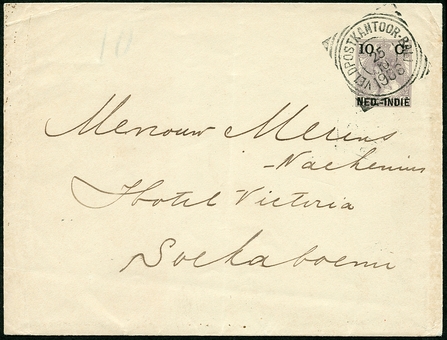 10
VELDPOSTKANTOOR-BALI
25
1906
10 C
NED.-INDIË
Mevrouw Merens
-Nackenius
Hotel Victoria
Soekaboemi